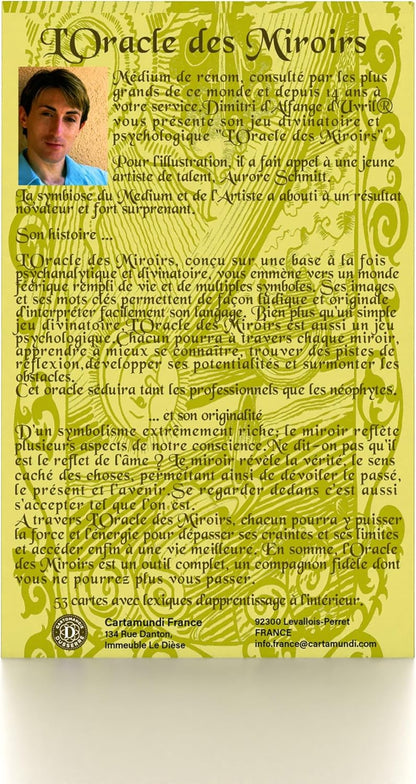 L'Oracle des Miroirs
Médium de rénom, consulté par les plus
grands de ce monde et depuis 14 ans à
votre service, Dimitri d'Alfange d'Uvril®
vous présente son jeu divinatoire et
psychologique "L'Oracle des Miroirs".
Pour l'illustration, il a fait appel à une jeune
artiste de talent, Aurore Schmitt.
La symbiose du Medium et de l'Artiste a abouti à un résultat
novateur et fort surprenant.
Son histoire ...
L'Oracle des Miroirs, conçu sur une base à la fois
psychanalytique et divinatoire, vous emmène vers un monde
féerique rempli de vie et de multiples symboles. Ses images
et ses mots clés permettent de façon ludique et originale
d'interpréter facilement son langage. Bien plus qu'un simple
jeu divinatoire L'Oracle des Miroirs est aussi un jeu
psychologique. Chacun pourra à travers chaque miroir,
apprendre à mieux se connaître, trouver des pistes de
réflexion, développer ses potentialités et surmonter les
obstacles.
Cet oracle séduira tant les professionnels que les néophytes.
... et son originalité
D'un symbolisme extrêmement riche; le miroir reflète
plusieurs aspects de notre conscience. Ne dit-on pas qu'il
est le reflet de l'âme ? Le miroir révèle la vérité, le sens
caché des choses, permettant ainsi de dévoiler le passé,
le présent et l'avenir. Se regarder dedans c'est aussi
s'accepter tel que l'on est.
A travers L'Oracle des Miroirs, chacun pourra y puisser
la force et l'énergie pour dépasser ses craintes et ses limites
et accéder enfin à une vie meilleure. En somme, l'Oracle
des Miroirs est un outil complet, un compagnon fidèle dont
vous ne pourrez plus vous passer.
53 cartes avec lexiques d'apprentissage à l'intérieur.
CARTOMANCIE
DUSSERRE
Cartamundi France
134 Rue Danton,
Immeuble Le Dièse
92300 Levallois-Perret
FRANCE
info.france@cartamundi.com